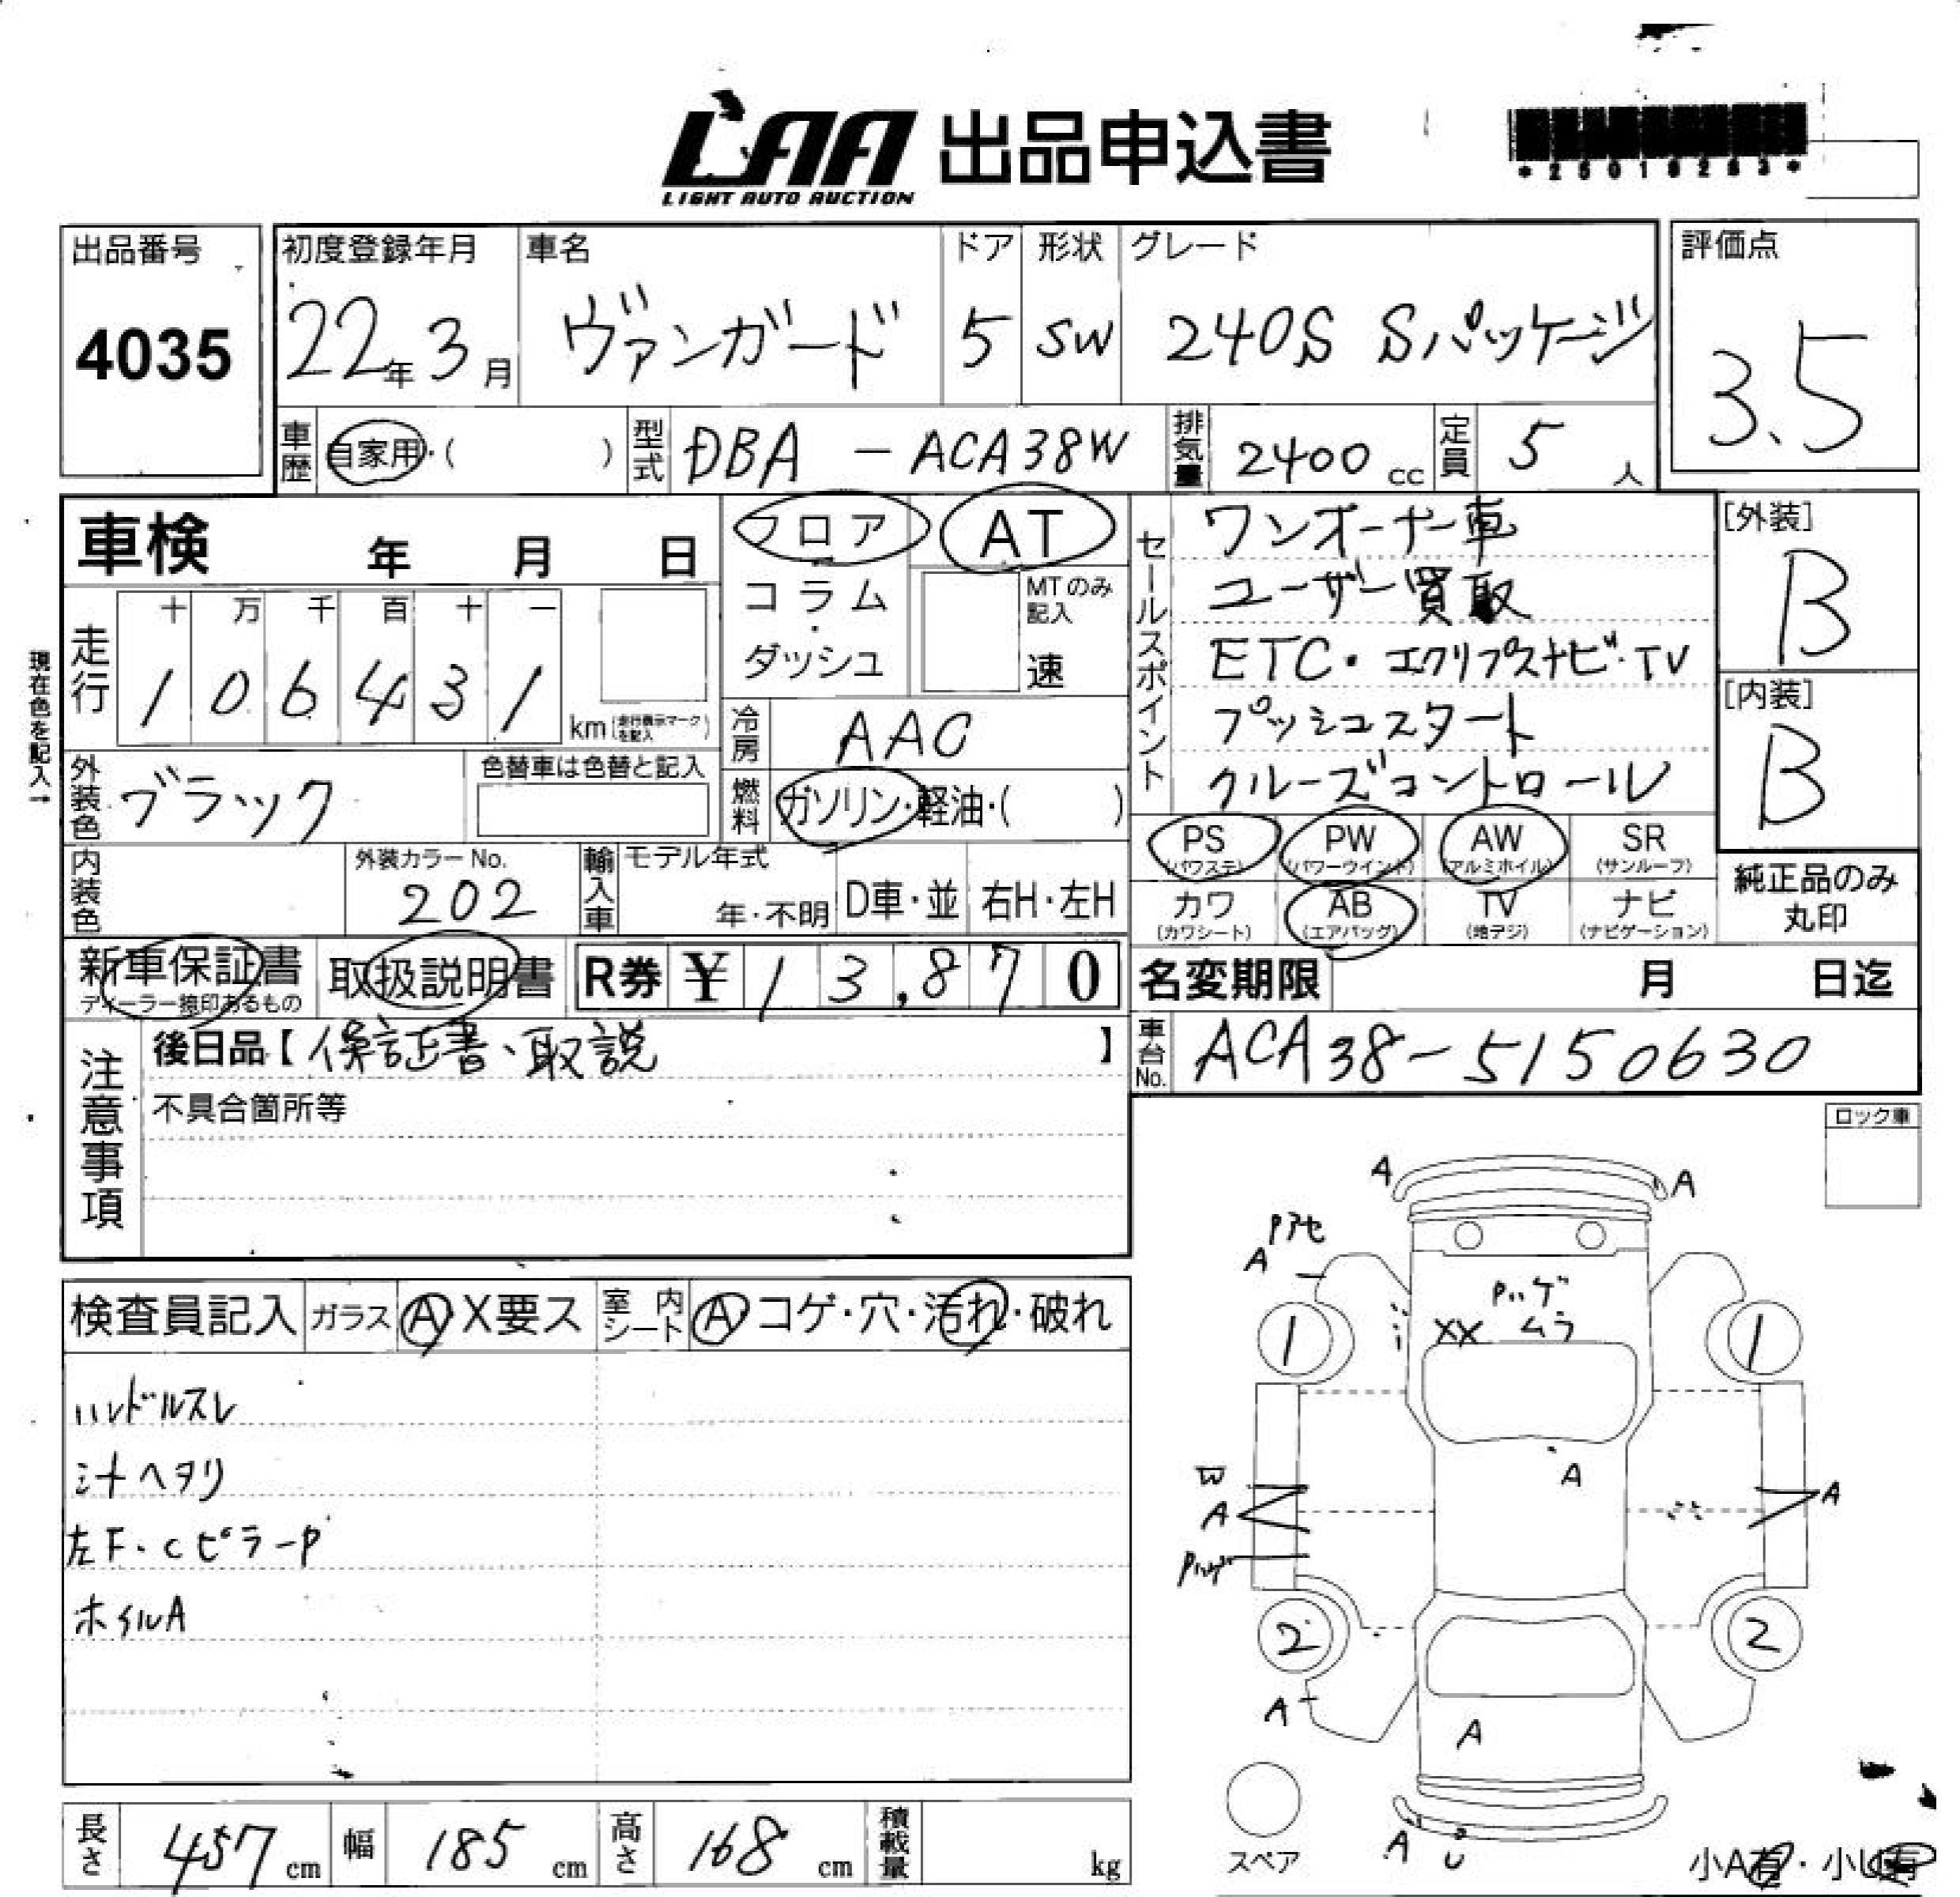 LAA 出品申込書
LIGHT AUTO AUCTION
出品番号
4035
初度登録年月
22年3月
車名
ヴァンガード
ドア
5
形状
SW
グレード
240S Sパッケージ
評価点
3.5
車歴
自家用・( )
型式
DBA - ACA38W
排気量
2400 cc
定員
5 人
車検 年 月 日
フロア
コラム
ダッシュ
AT
MTのみ記入
速
セールスポイント
ワンオーナー車
ユーザー買取
ETC・エクリプスナビ・TV
プッシュスタート
クルーズコントロール
[外装]
B
[内装]
B
現在色を記入→
走行
十 万 千 百 十 一
1 0 6 4 3 1
km (走行表示マークを記入)
冷房
AAC
外装色
ブラック
色替車は色替と記入
燃料
ガソリン・軽油・( )
内装色
外装カラーNo.
202
輸入車
モデル年式
年・不明
D車・並
右H・左H
PS
(パワステ)
PW
(パワーウインド)
AW
(アルミホイル)
SR
(サンルーフ)
カワ
(カワシート)
AB
(エアバッグ)
TV
(地デジ)
ナビ
(ナビゲーション)
純正品のみ
丸印
新車保証書
ディーラー捺印あるもの
取扱説明書
R券 ¥ 13,870
名変期限 月 日迄
車台No.
ACA38-5150630
注意事項
後日品【保証書、取説】
不具合箇所等
ロック車
検査員記入
ガラス A X要ス
室内シート A コゲ・穴・汚れ・破れ
ハンドルスレ
シートヘタリ
左F・CピラーP
ホイルA
A
A
Pアセ
A
Pハゲ
ムラ
XX
1
1
W
A
A
A
Pハゲ
2
2
A
A
A
U
スペア
小A有・小U有
長さ 457 cm
幅 185 cm
高さ 168 cm
積載量 kg